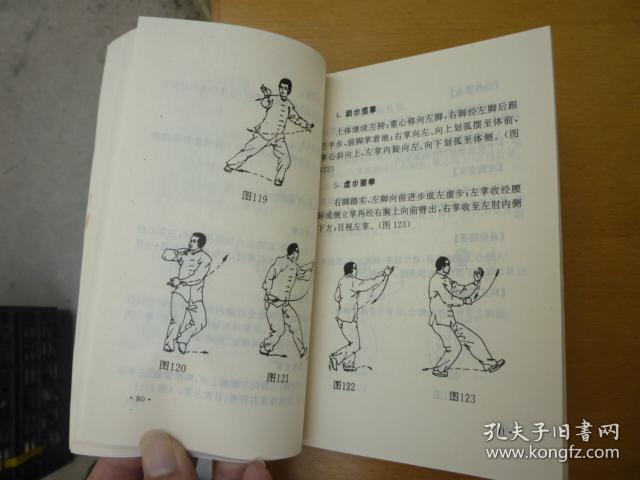 图119
图120
图121
·80·
4. 跟步摆掌
上体继续左转；重心移向左脚，右脚经左脚后跟
半步，前脚掌着地；右掌向左、向上划弧摆至体前，
掌心斜向上，左掌内旋向左、向下划弧至体侧。（图
122）
5. 虚步
右脚踏实，左脚向前进步成左虚步；左掌收经腰
际成侧立掌再经右腕上向前劈出，右掌收至左肘内侧
下方；目视左掌。（图123）
图122
图123
孔夫子旧书网
www.kongfz.com